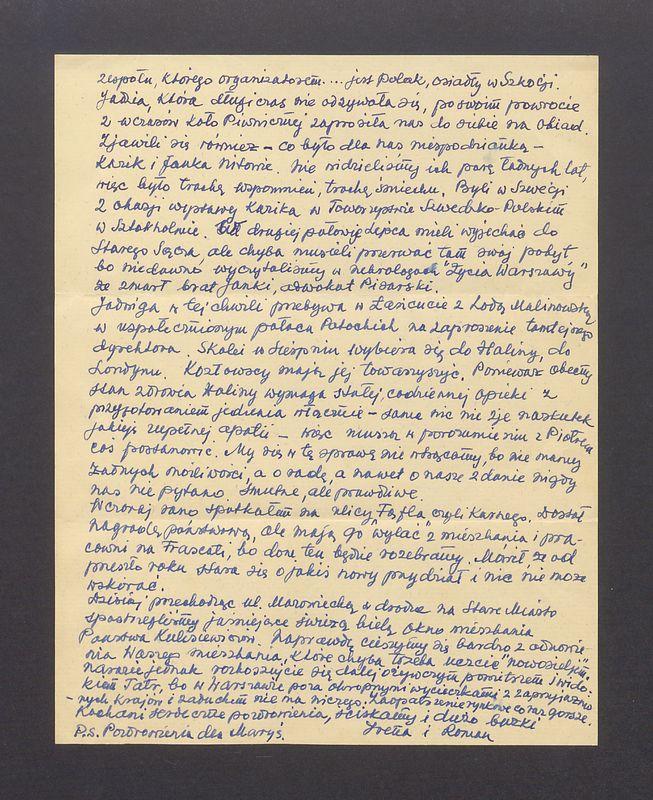 zespołu, którego organizatorem... jest Polak, osiadły w Szkocji.
Jadzia, która długi czas nie odzywała się, po swoim powrocie
z wczasów koło Piwnicznej zaprosiła nas do siebie na obiad.
Zjawili się również – co było dla nas niespodzianką –
Kazik i Janka Witowie. Nie widzieliśmy ich parę ładnych lat,
więc było trochę wspomnień, trochę śmiechu. Byli w Szwecji
z okazji wystawy Kazika w Towarzystwie Szwedzko-Polskim
w Sztokholmie. W drugiej połowie lipca mieli wyjechać do
Starego Sącza, ale chyba musieli przerwać tam swój pobyt,
bo niedawno wyczytaliśmy w nekrologach "Życia Warszawy"
że zmarł brat Janki, adwokat Pisarski.
Jadwiga w tej chwili przebywa w Łańcucie z Lodą Malinowską
w uspołecznionym pałacu Potockich na zaproszenie tamtejszego
dyrektora. Skolei w sierpniu wybiera się do Haliny, do
Londynu. Kozłowscy mają jej towarzyszyć. Ponieważ obecny
stan zdrowia Haliny wymaga stałej, codziennej opieki z
przygotowaniem jedzenia włącznie – sama nic nie je naskutek
jakiejś zupełnej apatii – więc muszą w porozumieniu z Piotrem
coś postanowić. My się w tę sprawę nie włączamy, bo nie mamy
żadnych możliwości, a o radę, a nawet o nasze zdanie nigdy
nas nie pytano. Smutne, ale prawdziwe.
Wczoraj rano spotkałem na ulicy "Fafla" czyli Karnego. Dostał
nagrodę państwową, ale mają go "wylać" z mieszkania i pra-
cowni na Frascati, bo dom ten będzie rozebrany. Mówił, że od
przeszło roku stara się o jakiś nowy przydział i nic nie może
wskórać.
Dzisiaj przechodząc ul. Mazowiecką w drodze na Stare Miasto
spostrzegliśmy jaśniejące świeżą bielą okno mieszkania
Państwa Kulisiewiczów. Naprawdę cieszymy się bardzo z odnowie-
nia Waszego mieszkania, które chyba trzeba uczcić "nowosieljem".
Narazie jednak rozkoszujcie się dalej ożywczym powietrzem i wido-
kiem Tatr, bo w Warszawie poza okropnymi wycieczkami z zaprzyjaźnio-
nych krajów i zaduchem nie ma niczego. Zaopatrzenie rynkowe coraz gorsze.
Kochani serdeczne pozdrowienia, ściskamy i dużo buźki
P.s. Pozdrowienia dla Marysi. Irena i Roman